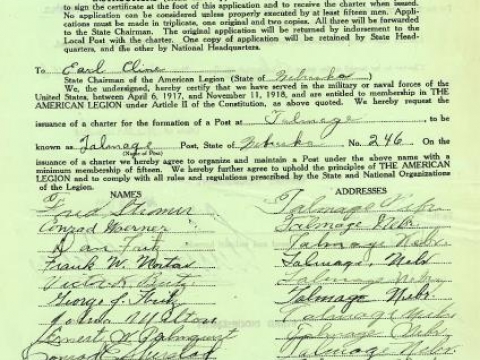 to sign the certificate at the foot of this application and to receive the charter when issued.
No application can be considered unless properly executed by at least fifteen men. Appli-
cations must be made in triplicate, one original and two copies. All three will be forwarded
to the State Chairman. The original application will be returned by indorsement to the
Local Post with charter. One copy of application will be retained by State Head-
quarters, and the other by National Headquarters.
To Earl Cline
State Chairman of the American Legion (State of Nebraska)
We, the undersigned, hereby certify that we have served in the military or naval forces of the
United States, between April 6, 1917, and November 11, 1918, and are entitled to membership in THE
AMERICAN LEGION under Article II of the Constitution, as above quoted. We hereby request the
issuance of a charter for the formation of a Post at Talmage, to be
known as Talmage Post, State of Nebraska No. 246. On the
(Name of Post)
issuance of a charter we hereby agree to organize and maintain a Post under the above name with a
minimum membership of fifteen. We hereby further agree to uphold the principles of THE AMERICAN
LEGION and to comply with all rules and regulations prescribed by the State and National Organizations
of the Legion.
NAMES ADDRESSES
Fred Talmage Nebr
Conrad Werner Talmage Nebr
Dan Talmage Nebr
Frank W. Talmage, Nebr
Victor Talmage Nebr
George J. Talmage Nebr.
Talmage Nebr
Ernest Talmage Nebr
Conrad Talmage Nebr